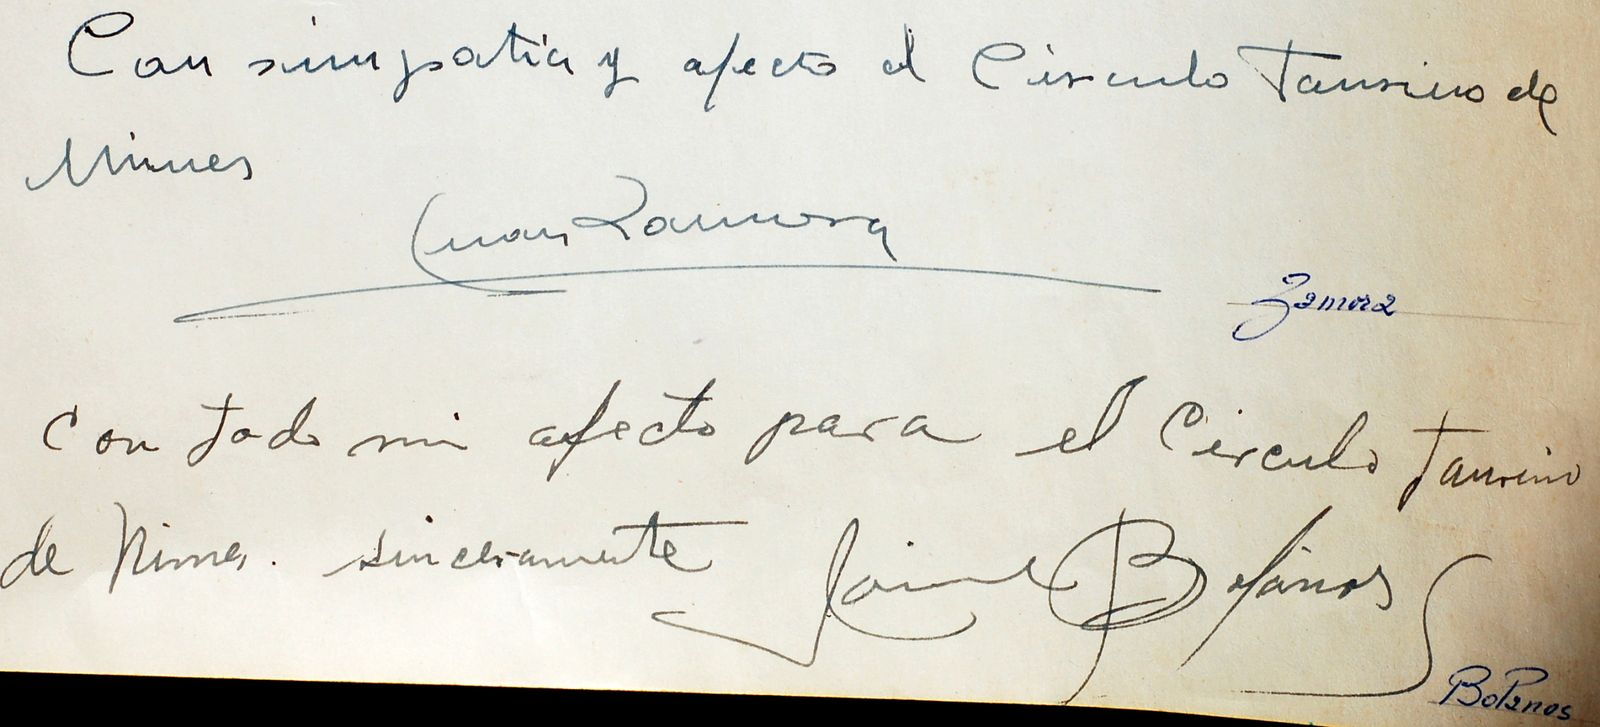 Con simpatia y afecto al Circulo Taurino de
Nimes
Juan Zamora
Zamora
Con todo mi afecto para el Circulo Taurino
de Nimes. sinceramente Jaime Bolaños
Bolanos